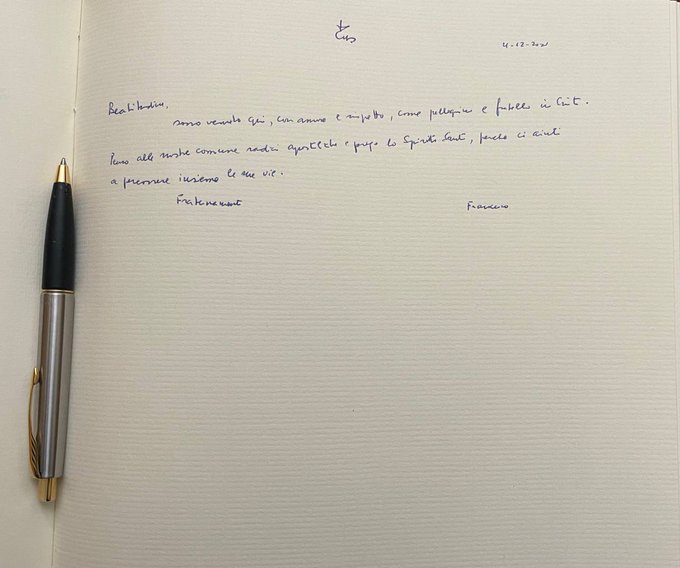 4-12-2021
Beatitudine,
sono venuto qui, con amore e rispetto, come pellegrino e fratello in Cristo.
Penso alle nostre comune radici apostoliche e prego lo Spirito Santo, perche ci aiuti
a percorrere insieme le sue vie.
Fraternamente Francesco